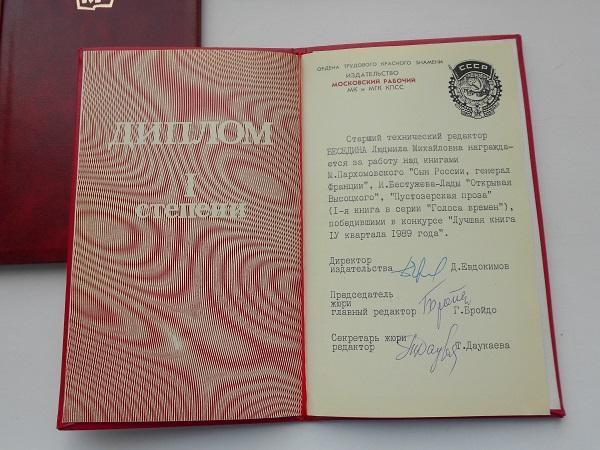 ДИПЛОМ
I
степени
ОРДЕНА ТРУДОВОГО КРАСНОГО ЗНАМЕНИ
ИЗДАТЕЛЬСТВО
МОСКОВСКИЙ РАБОЧИЙ
МК и МГК КПСС
СССР
Старший технический редактор
БЕСЕДИНА Людмила Михайловна награжда-
ется за работу над книгами
М.Пархомовского "Сын России, генерал
Франции", И.Бестужева-Лады "Открывая
Высоцкого", "Пустозерская проза"
(I-я книга в серии "Голоса времен"),
победившими в конкурсе "Лучшая книга
IУ квартала 1989 года".
Директор
издательства Д.Евдокимов
Председатель
жюри
главный редактор Г.Бройдо
Секретарь жюри
редактор Т.Даукаева